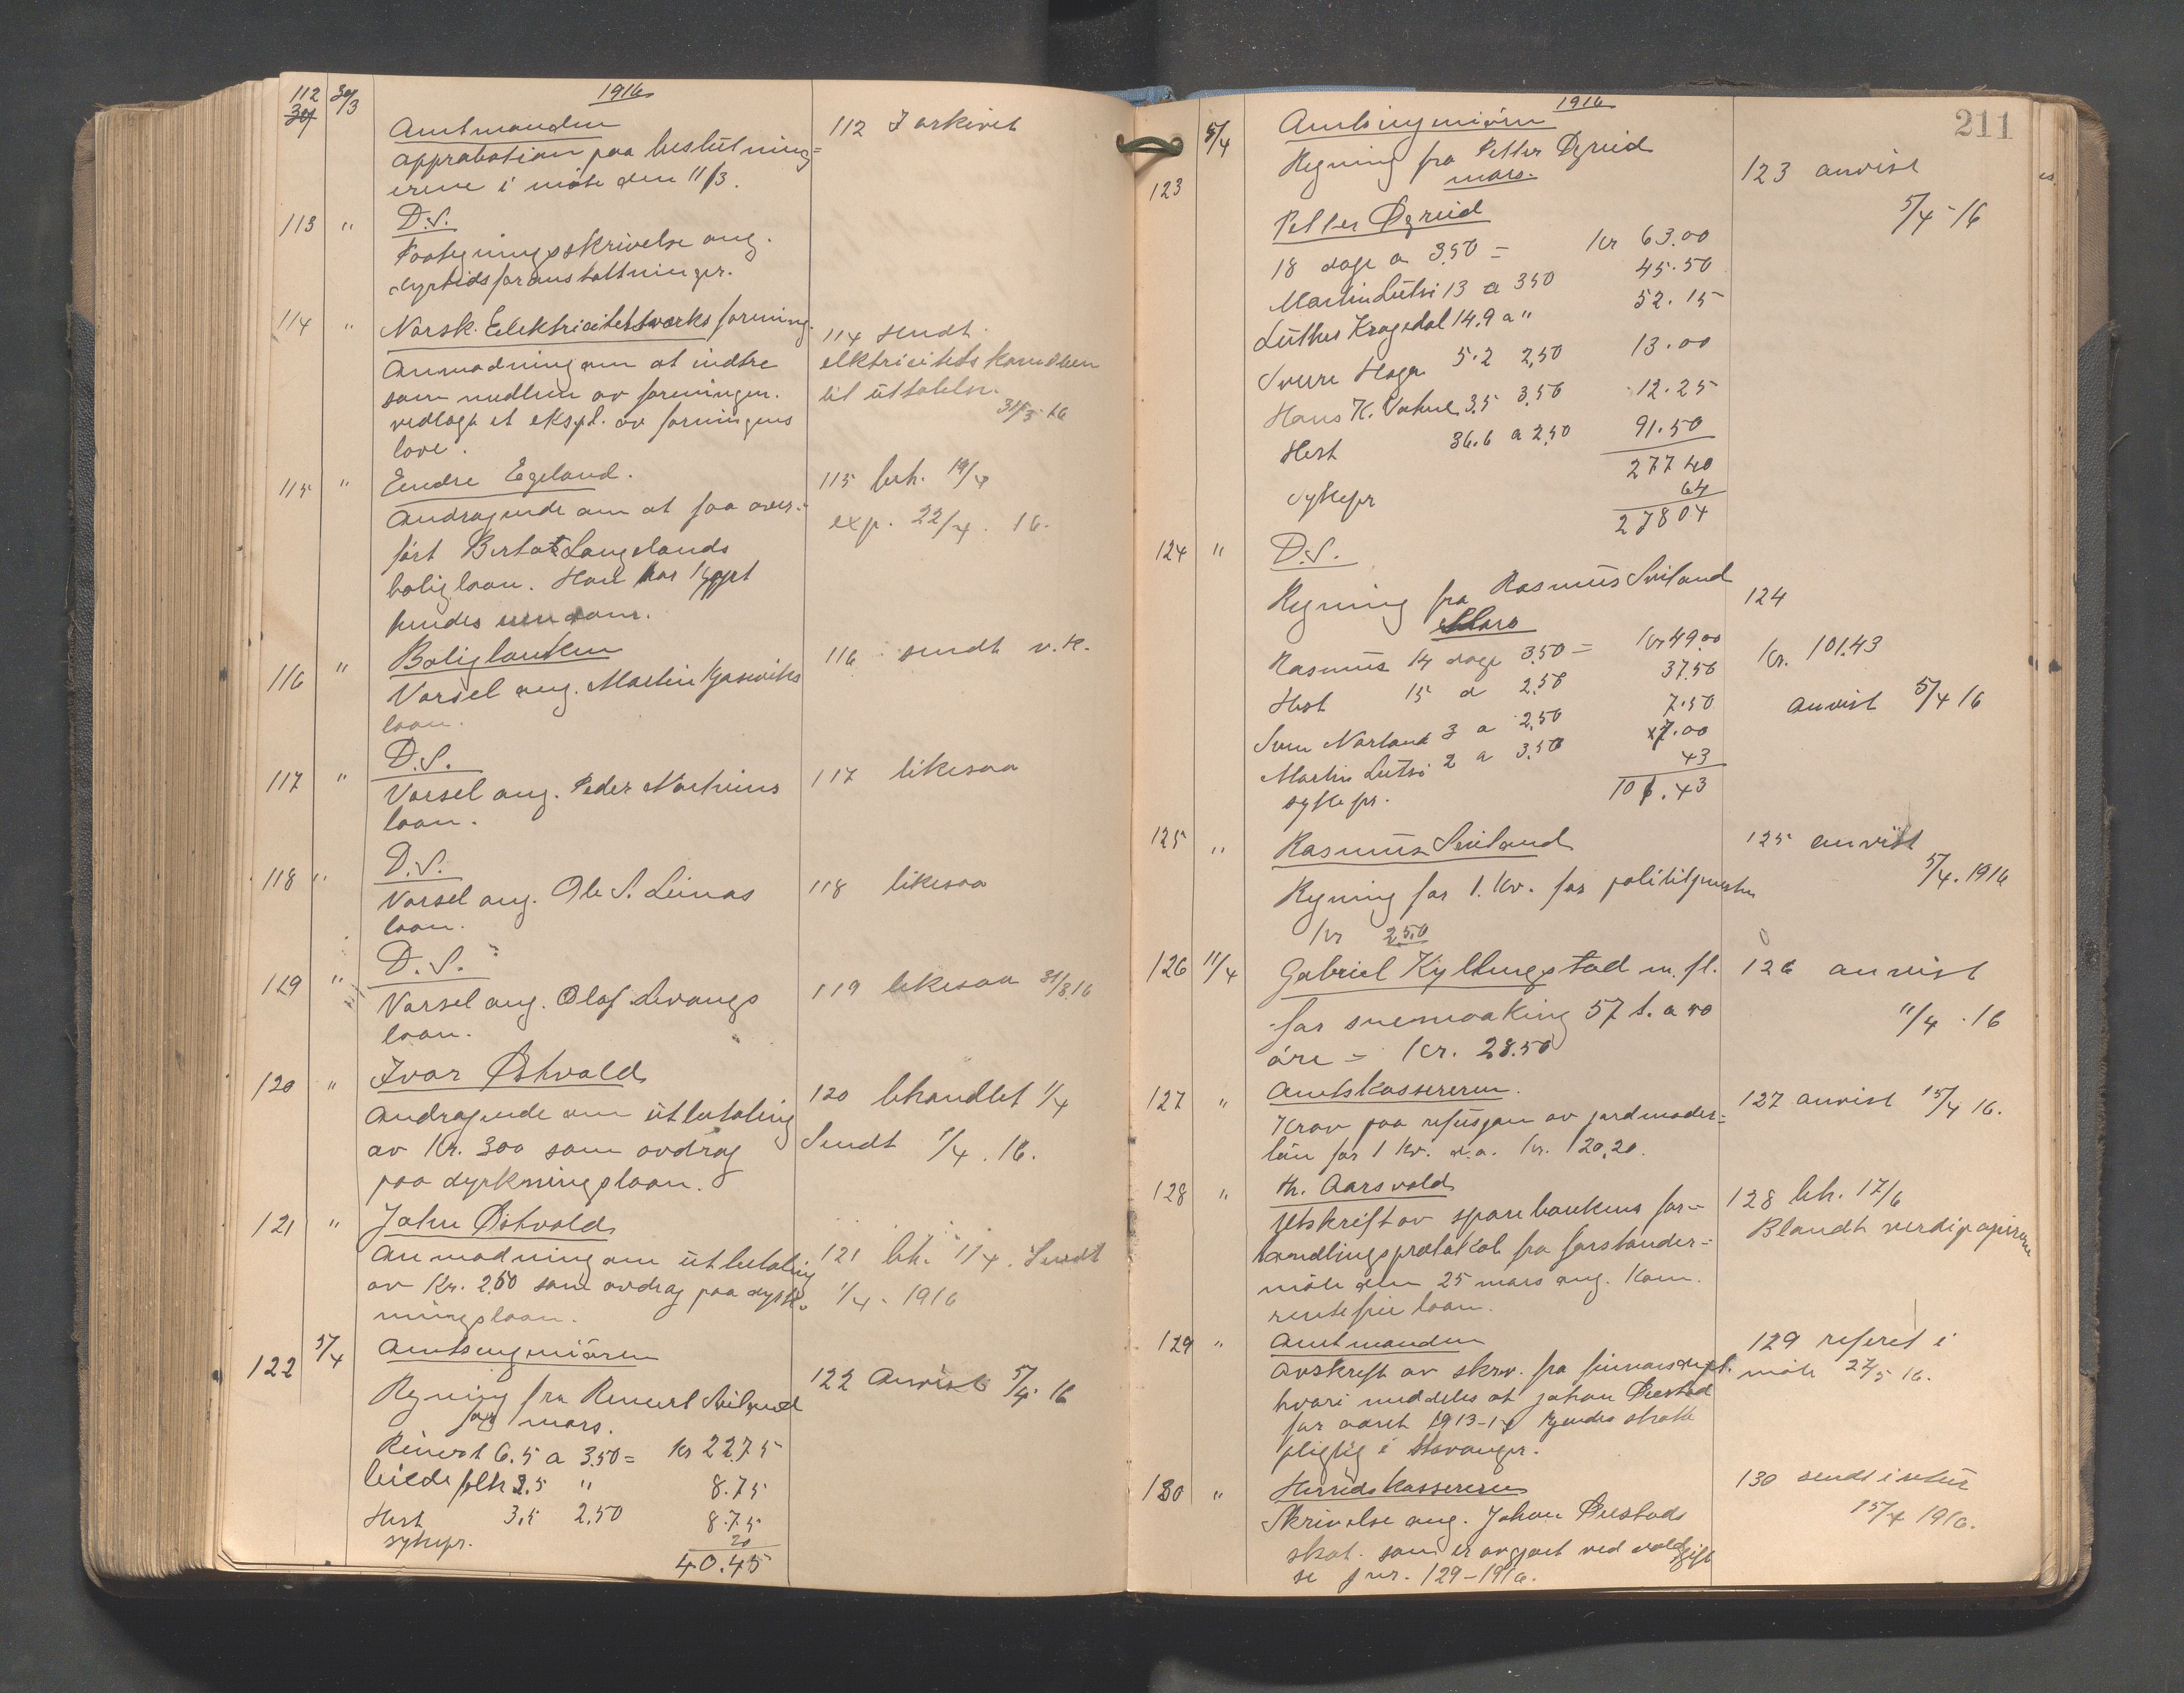 1916
112 30/3 Amtmanden 112 I arkivet
30/
approbation paa beslutning=
erene i møte den 11/3.
113 " D.S.
Paategningsskrivelse ang.
dyrtidsforanstaltninger.
114 " Norsk Elektricitetsverks forening. 114 sendt
Anmodning om at indtre elektricitetskomiteen
som medlem av foreningen. til uttalelse.
vedlagt et ekspl. av foreningens 31/3 16
love.
115 " Endre Egeland. 115 beh. 19/4
Andragende om at faa over- exp. 22/4. 16.
ført Berta Langelands
boliglaan. Han har kjøpt
hendes eiendom.
116 " Boligbanken 116 sendt v.k.
Varsel ang. Martin
laan.
117 " D.S. 117 likesaa
Varsel ang. Peder
laan.
118 " D.S. 118 likesaa
Varsel ang. Ole S. Limas
laan.
119 " D.S. 119 likesaa 31/3 16
Varsel ang. Olaf Levangs
laan.
120 " Ivar Østvold 120 behandlet 1/4
Andragende om utbetaling Sendt 1/4. 16.
av Kr. 300 som avdrag
paa dyrkningslaan.
121 " John Østvold 121 beh. 1/4. Sendt
Anmodning om utbetaling 1/4. 1916
av Kr. 250 som avdrag paa dyrk-
ningslaan.
122 5/4 Amtsingeniøren 122 Anvist 5/4. 16
Regning fra Reinert Seiland
for mars.
Reinert 6.5 a 3.50 = Kr 22.75
leiede folk 2.5 " 8.75
Hest 3,5 2,50 8.75
sykepr. 20
40.45
211
1916
5/4 Amtsingeniøren
123 Regning fra Petter Øgreid 123 anvist
mars. 5/4 - 16
Petter Øgreid
18 dage a 3.50 = Kr 63.00
Martin Lutsi 13 a 350 45.50
Luther Kragedal 14.9 a " 52.15
Sverre Haga 5.2 2,50 13.00
Hans K. 3,5 3,50 12.25
Hest 36.6 a 2,50 91.50
277 40
Sykepr 64
278 04
124 " D.S.
Regning fra Rasmus Seiland 124
Mars
Rasmus 14 dage 3.50 = Kr 49.00 Kr. 101.43
Hest 15 a 2.50 37.50
Sven Norland 3 a 2,50 7.50 anvist 5/4 16
Martin Lutsi 2 a 3.50 7.00
sykepr. 43
101.43
125 " Rasmus Seiland 125 anvist
Regning for 1. kv. for polititjeneste 5/4. 1916
Kr 250
126 11/4 Gabriel Kyllingstad m. fl. 126 anvist
for snemoaking 57 t. a 50 11/4 . 16
øre = Kr. 28.50
127 " Amtskassereren. 127 anvist 15/4 16.
Krav paa refusjon av jordmoder-
løn for 1 kv. d.a. Kr. 120,20.
128 " Th. Aarsvold 128 beh. 17/6
Utskrift av sparebankens for- Blandt verdipapirene
handlingsprotokol fra forstander-
møte den 25 mars ang. kom.
rentefrie laan.
129 " Amtmanden 129 referet i
Avskrift av skriv. fra finansdept. møte 27/5 16.
hvori meddeles at Johan Øvestad
for aaret 1913-14 kjendes skatte
pligtig i Stavanger.
130 " Herredskassereren 130 sendt i retur
Skrivelse ang. Johan Øvestads 15/4 1916.
skat. som er avgjort ved voldgift
se jnr. 129-1916.